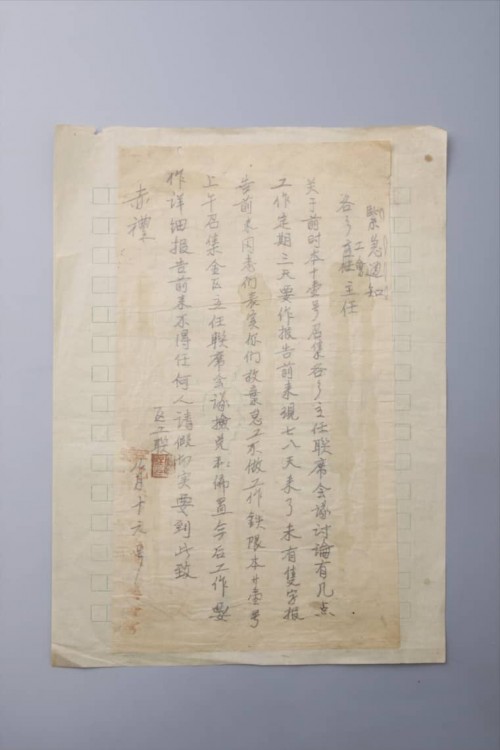 緊急通知
各乡工會主任
关于前时本十壹号召集各乡主任联席会議讨論有几点
工作定期三天要作报告前来現七八天来了未有隻字报
告前来同志们表实你们故意怠工不做工作鉄限本廿壹号
上午召集全区主任联席会議撿兑和佈置今后工作要
作详细报告前来不得任何人請假切实要到此致
赤禮
九月十六号